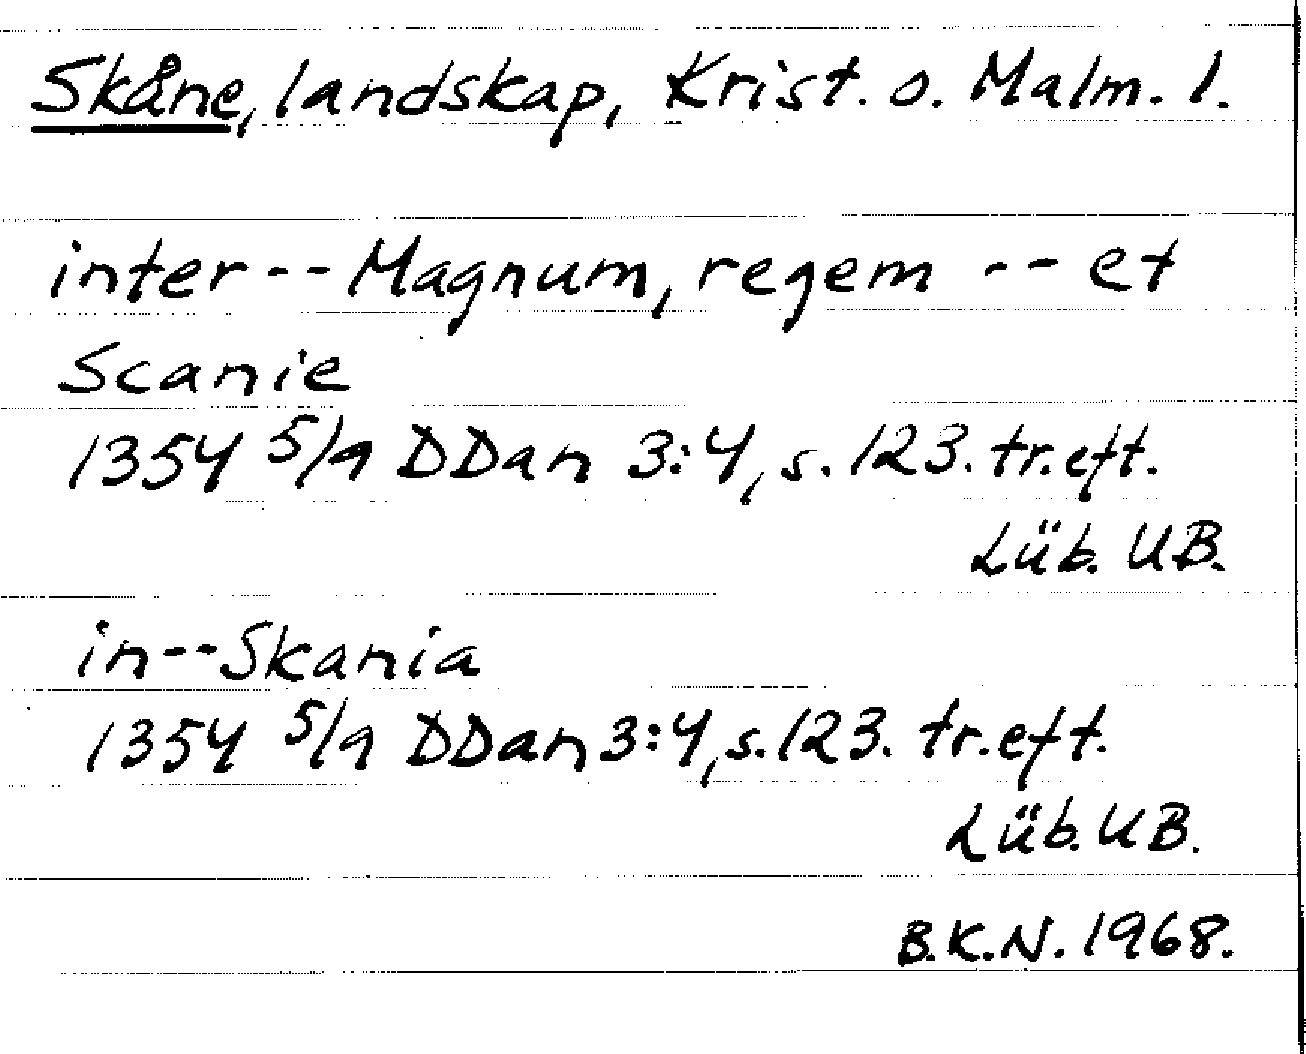 Skåne, landskap, Krist. o. Malm. l.
inter -- Magnum, regem -- et
Scanie
1354 5/9 DDan 3:4, s. 123. tr. eft.
Lüb. UB.
in -- Skania
1354 5/9 DDan 3:4, s. 123. tr. eft.
Lüb. UB.
B.K.N. 1968.